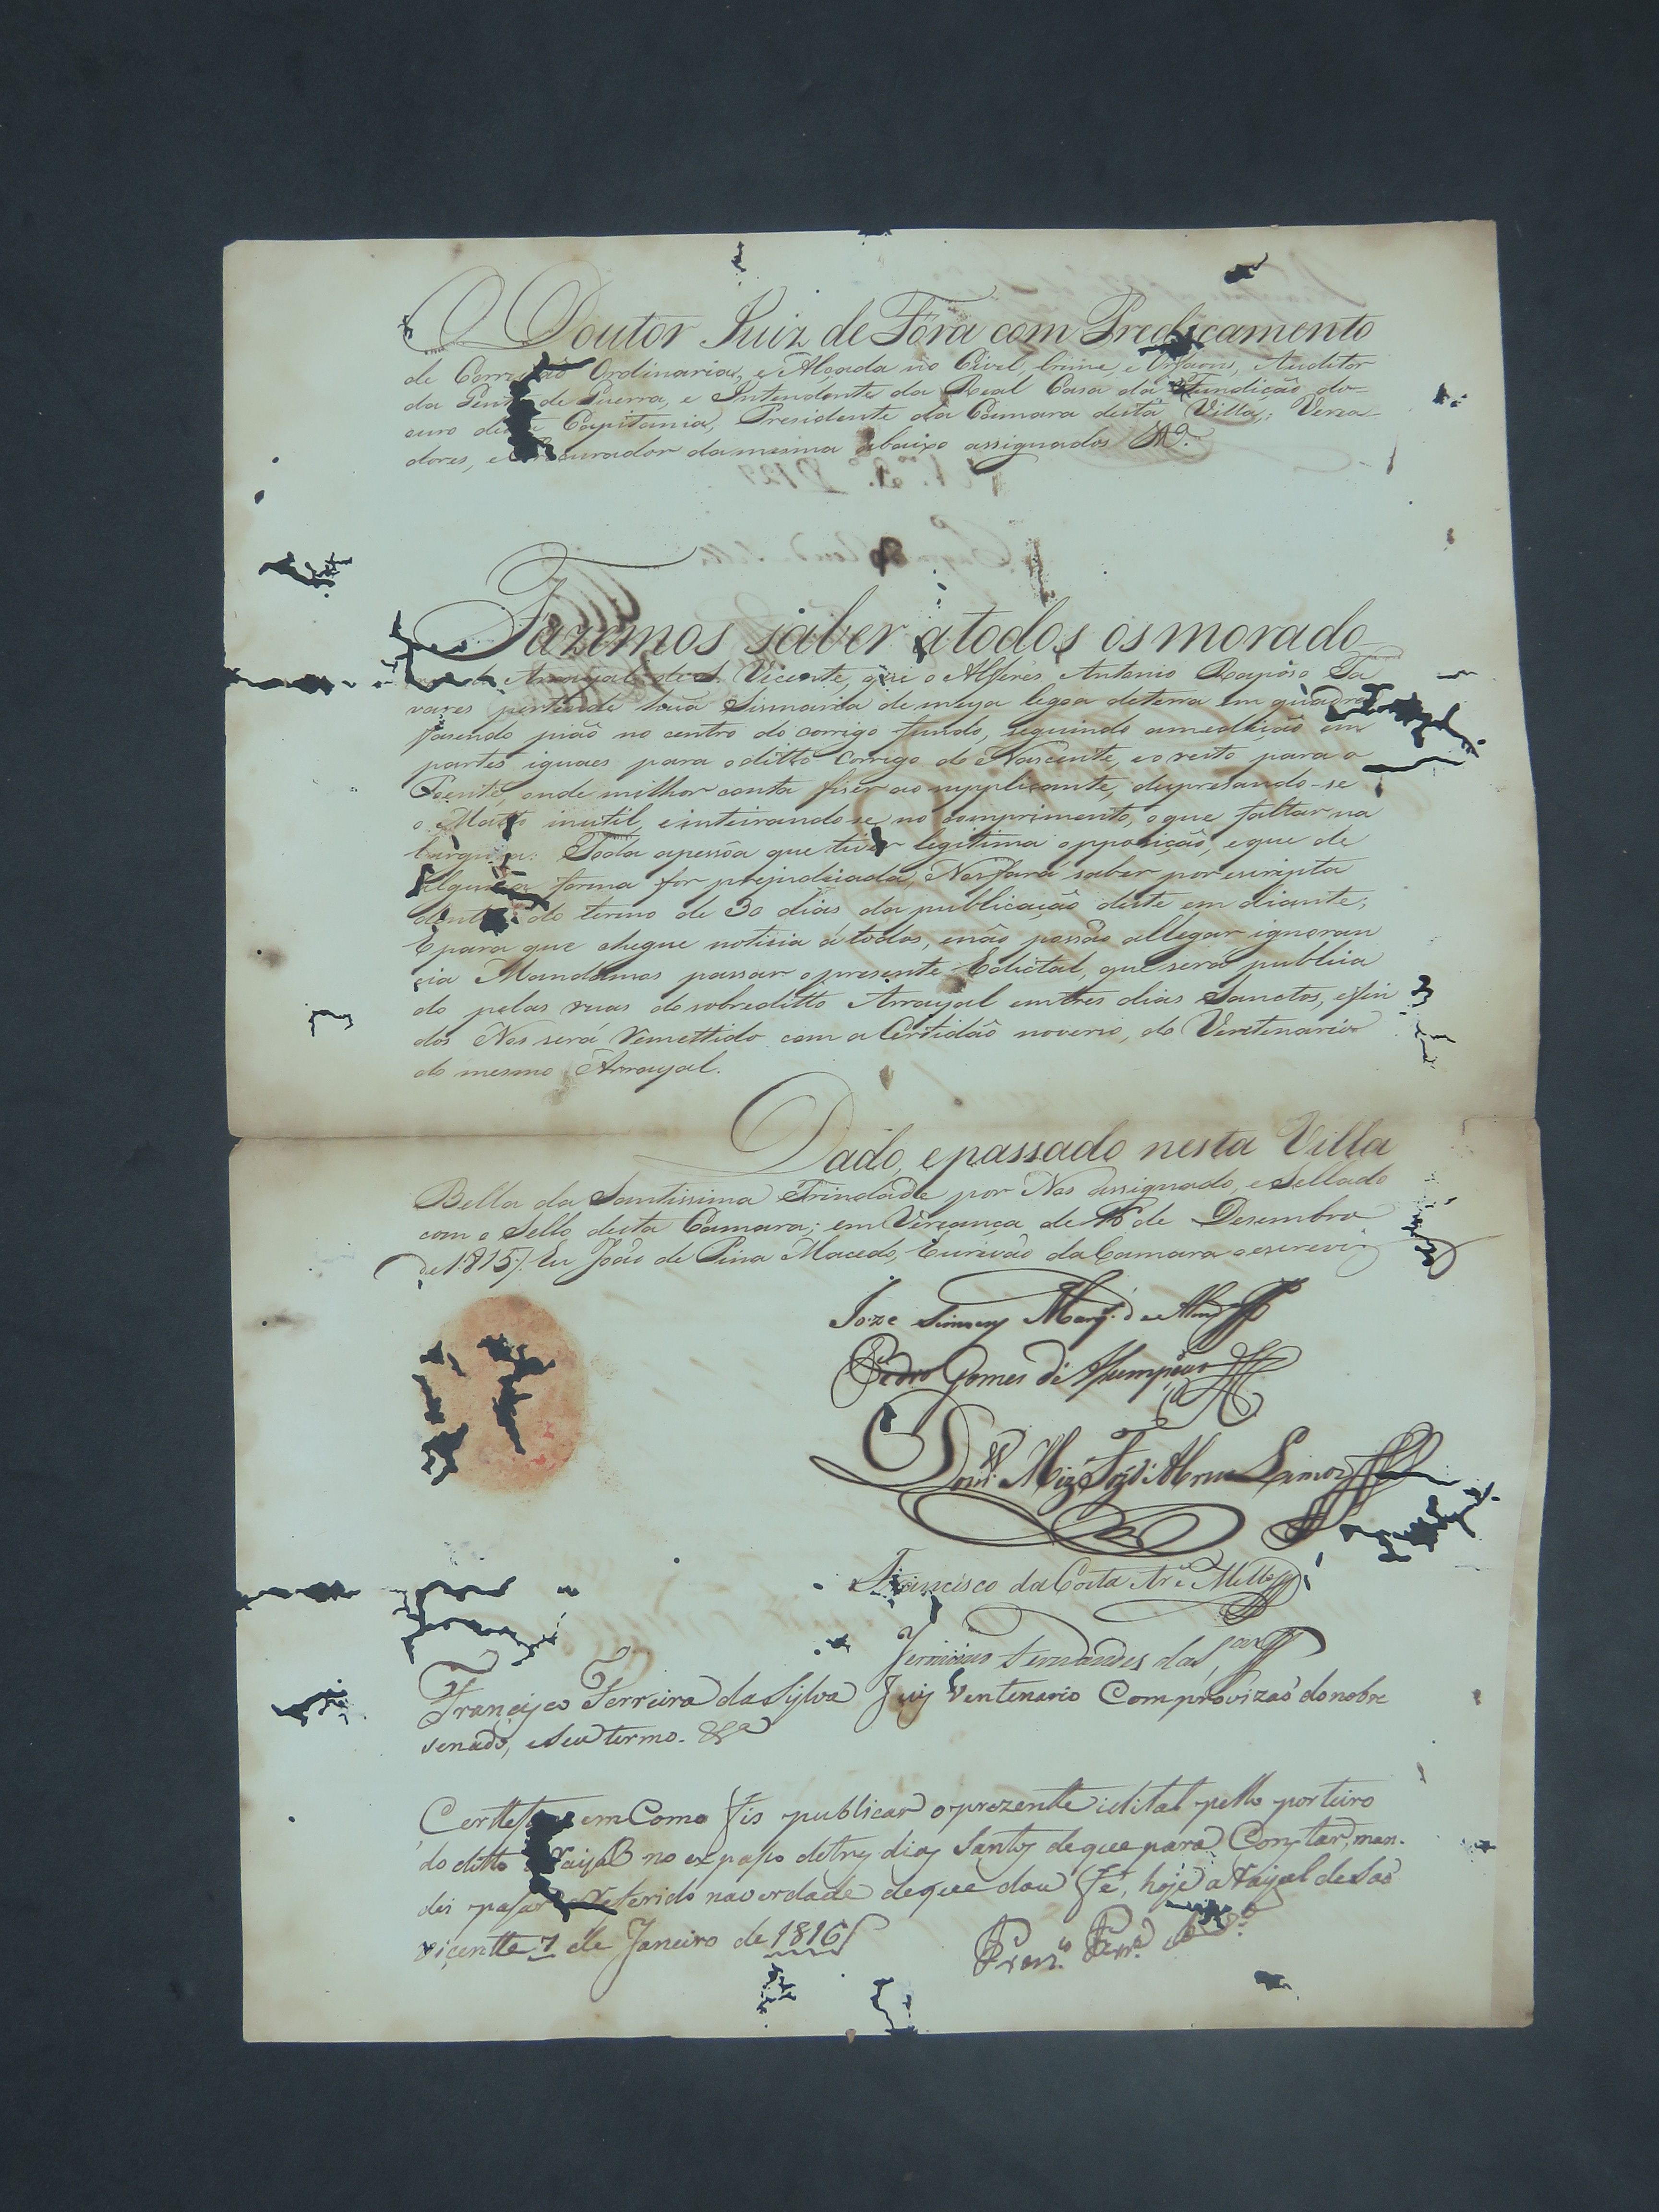 O Doutor Juiz de Fóra com Predicamento
de Correição Ordinaria, e Alçada no Civel, Crime, e Orfaons, Auditor
da Gente de Guerra, e Intendente da Real Casa da Fundição do
ouro desta Capitania, Presidente da Camara desta Villa; Verea-
dores, e Procurador da mesma abaixo assignados &.ª
Fazemos saber atodos os morado
do Arrayal de S. Vicente, que o Alferes Antonio Rapôso Ta
vares pertende huã Sismaria de meya legoa deterra em quadra
fasendo piaõ no centro do corrigo fundo, seguindo amediçaõ em
partes iguaes para oditto Corrigo do Nascente, eo resto para o
Poente, onde milhor conta fiser ao supplicante, dispresando-se
o Matto inutil, einteirandose no comprimento, oque faltar na
largura: Toda apessôa que tiver legitima opposiçaõ, eque de
alguma forma for prejudicada, Nosfará saber por escripta
dentro do termo de 30 dias da publicaçaõ deste em diante;
Epara que chegue noticia á todos, enaõ possaõ allegar ignoran
cia Mandamos passar opresente Edictal, que será publica
do pelas ruas dosobreditto Arrayal emtres dias Sanctos, efin
dos Nos será remettido com a Certidaõ noverso, do Ventenario
do mesmo Arrayal.
Dado, epassado nesta Villa
Bella da Santissima Trindade por Nos assignado, e Sellado
com o Sello desta Camara; em Vereança de 16 de Desembro
de 1815. Eu Joaõ de Pina Macedo, Escrivaõ da Camara oescrevi
Joze
Pedro Gomes
Francisco da Costa
Fernandes da
Francisco Ferreira da Sylva Juiz Ventenario Comprovizaõ donobre
senado, eseu termo. &.ª
emComo fis publicar oprezentte idital pello porteiro
do ditto no expaso detres dias santos deque para Constar, man-
dei pasar referido naverdade deque dou fé, hoje aRayal de Saõ
vicentte 7 de Janeiro de 1816
Fran.co Ferr.ª